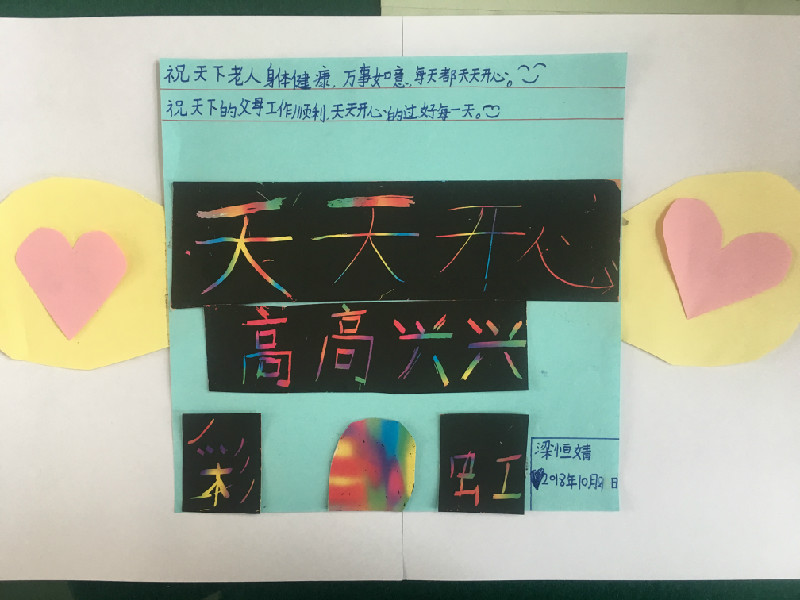 祝天下老人身体健康,万事如意,每天都天天开心。
祝天下的父母工作顺利,天天开心的过好每一天。
天天开心
高高兴兴
彩虹
梁恒婧
2018年10月 日